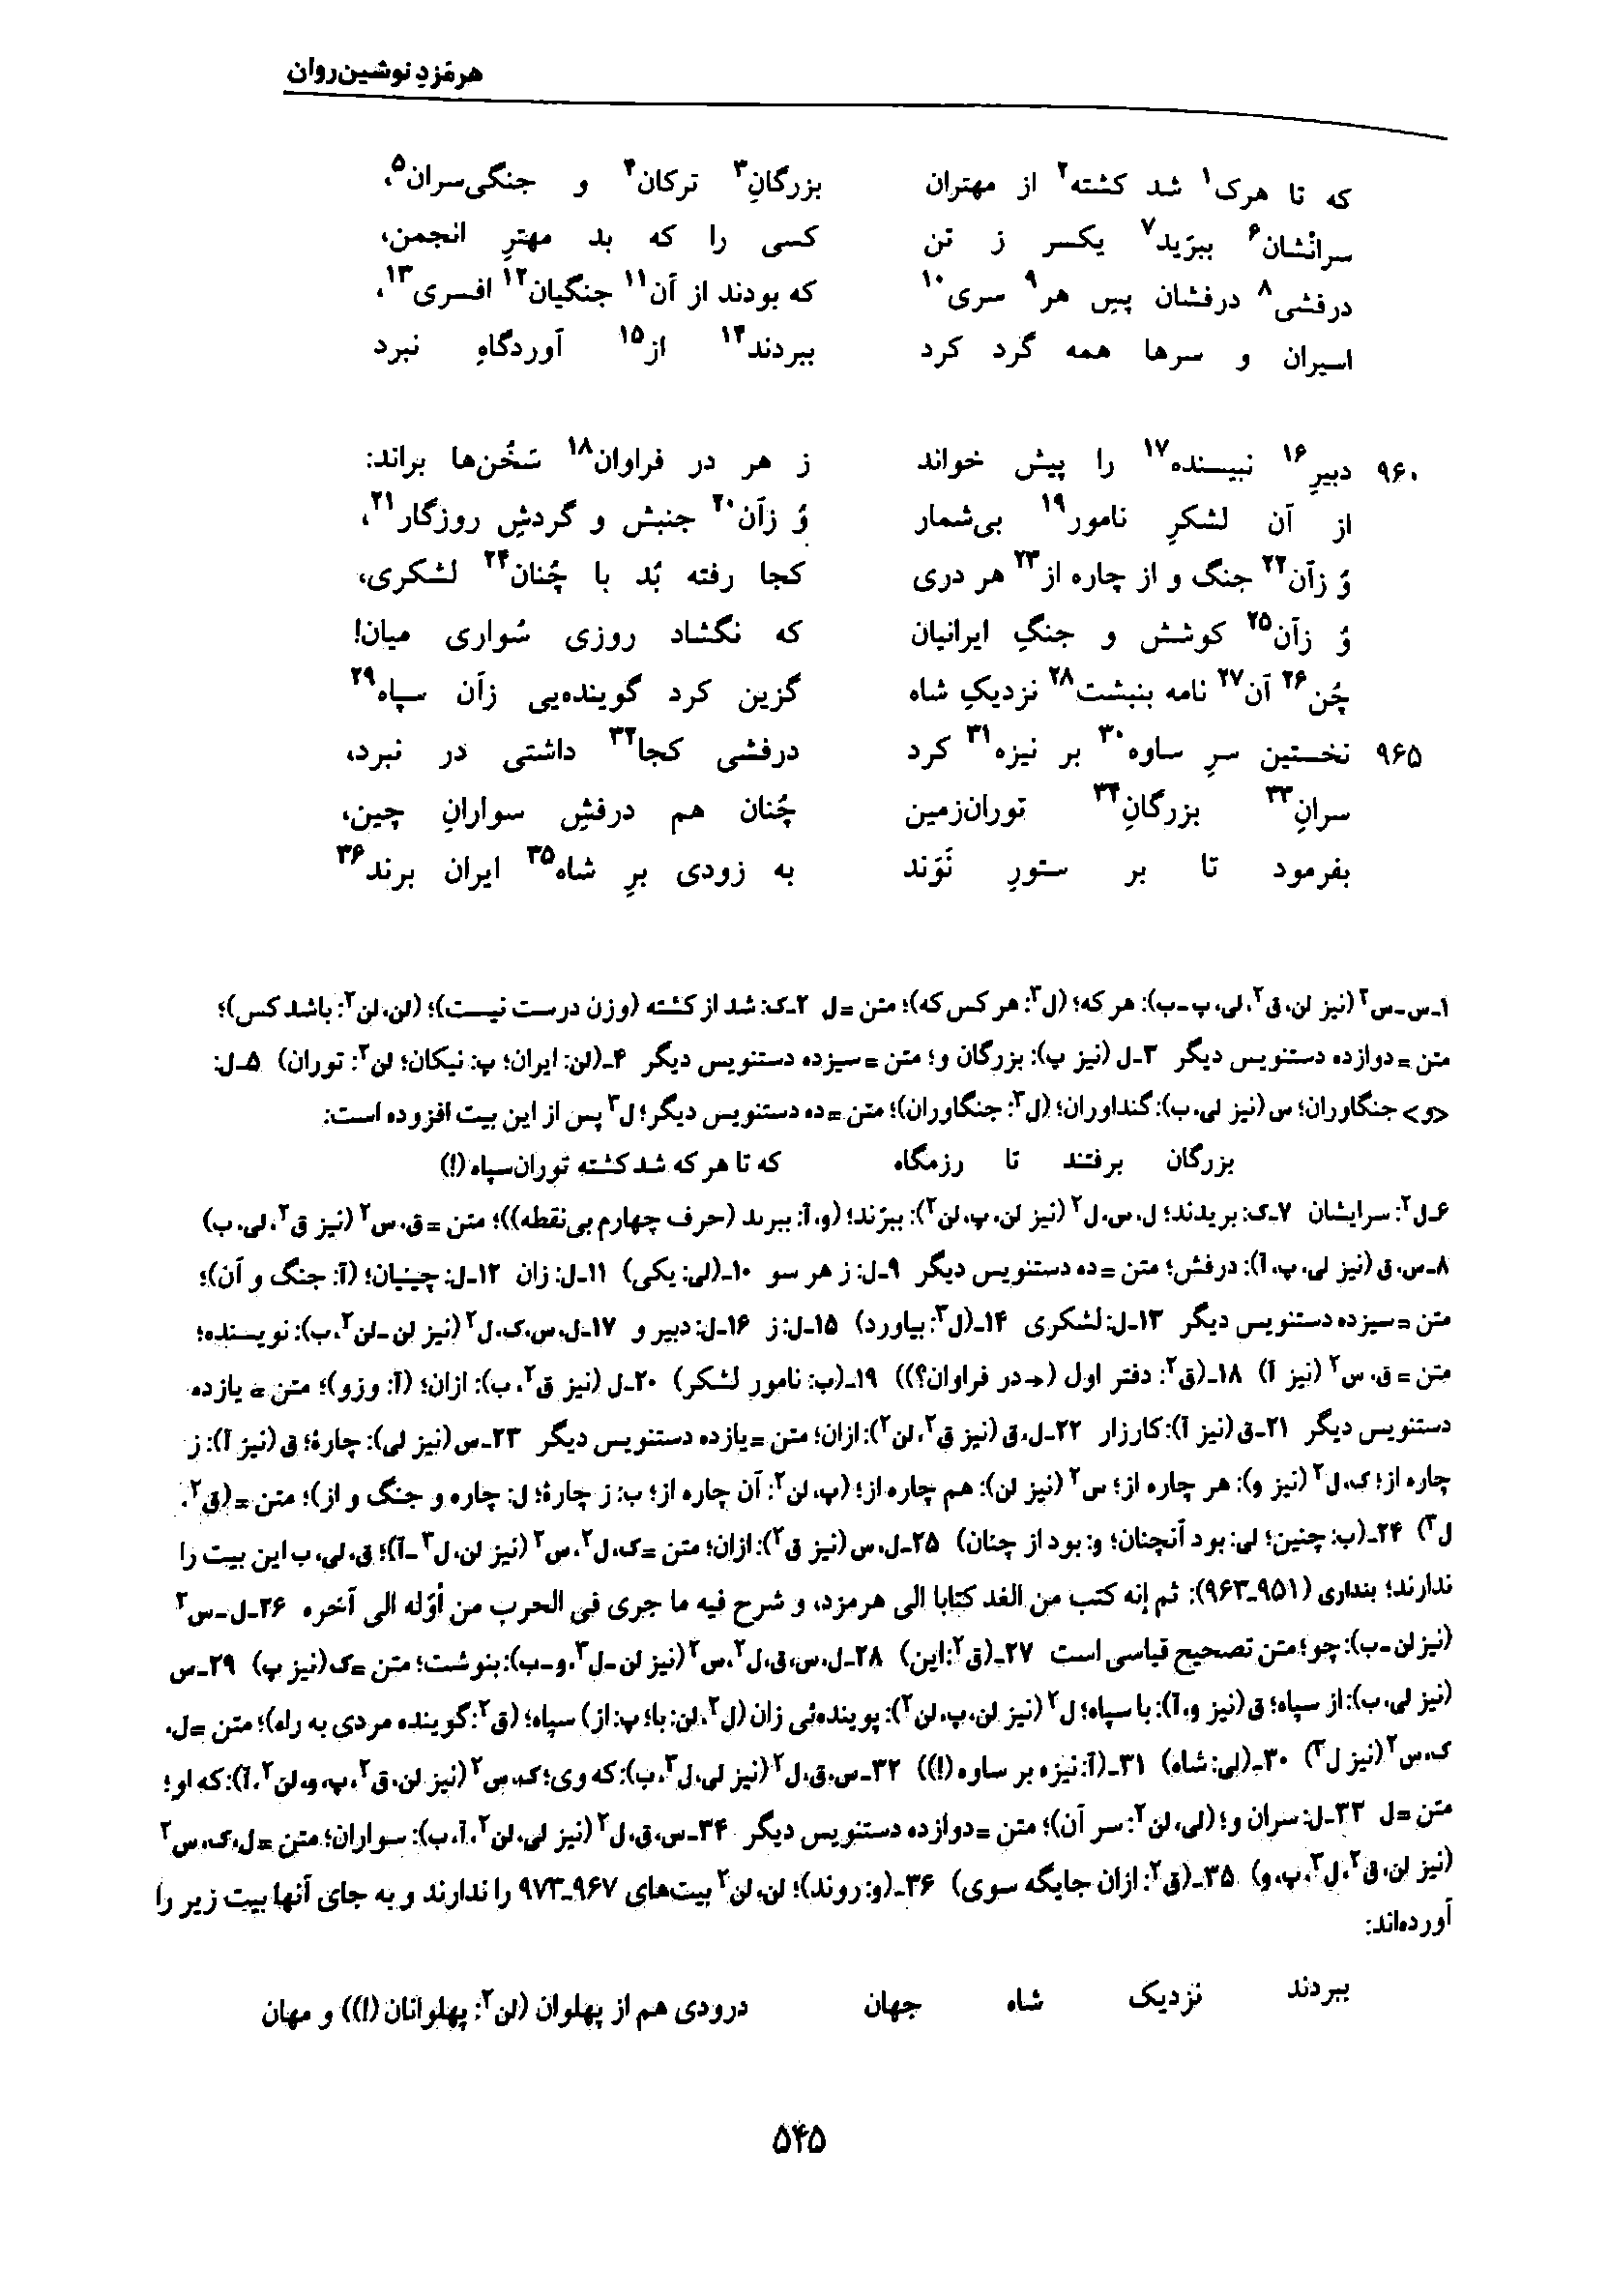 هرمَزدِ نوشین‌روان
که تا هرک۱ شد کشته۲ از مهتران بزرگانِ۳ ترکان۴ و جنگی‌سران۵،
سرانْشان۶ ببرّید۷ یکسر ز تن کسی را که بد مهترِ انجمن،
درفشی۸ درفشان پسِ هر۹ سری۱۰ که بودند از آن۱۱ جنگیان۱۲ افسری۱۳،
اسیران و سرها همه گرد کرد ببردند۱۴ از۱۵ آوردگاهِ نبرد
۹۶۰ دبیرِ۱۶ نبیسنده۱۷ را پیش خواند ز هر در فراوان۱۸ سَخُن‌ها براند:
از آن لشکرِ نامور۱۹ بی‌شمار وُ زآن۲۰ جنبش و گردشِ روزگار۲۱،
وُ زآن۲۲ جنگ و از چاره از۲۳ هر دری کجا رفته بُد با چُنان۲۴ لشکری،
وُ زآن۲۵ کوشش و جنگِ ایرانیان که نگشاد روزی سُواری میان!
چُن۲۶ آن۲۷ نامه بنبشت۲۸ نزدیکِ شاه گزین کرد گوینده‌یی زآن سپاه۲۹
۹۶۵ نخستین سرِ ساوه۳۰ بر نیزه۳۱ کرد درفشی کجا۳۲ داشتی در نبرد،
سرانِ۳۳ بزرگانِ۳۴ توران‌زمین چُنان هم درفشِ سوارانِ چین،
بفرمود تا بر ستورِ نَوَند به زودی برِ شاه۳۵ ایران برند۳۶
۱ـ س ـ س۲ (نیز لن، ق۲، لی، پ ـ ب): هر که؛ (ل۳: هر کس که)؛ متن = ل ۲ـ ک: شد از کشته (وزن درست نیست)؛ (لن، لن۲: باشد کس)؛
متن = دوازده دستنویس دیگر ۳ـ ل (نیز پ): بزرگان و؛ متن = سیزده دستنویس دیگر ۴ـ (لن: ایران؛ پ: نیکان؛ لن۲: توران) ۵ـ ل:
<و> جنگاوران؛ س (نیز لی، ب): گنداوران؛ (ل۳: جنگاوران)؛ متن = ده دستنویس دیگر؛ ل۳ پس از این بیت افزوده است:
بزرگان برفتند تا رزمگاه که تا هر که شد کشته توران‌سپاه (!)
۶ـ ل۲: سرایشان ۷ـ ک: بریدند؛ ل، س، ل۲ (نیز لن، پ، لن۲): ببرّند؛ (و، آ: ببرىد (حرف چهارم بی‌نقطه))؛ متن = ق، س۲ (نیز ق۲، لی، ب)
۸ـ س، ق (نیز لی، پ، آ): درفش؛ متن = ده دستنویس دیگر ۹ـ ل: ز هر سو ۱۰ـ (لی: یکی) ۱۱ـ ل: زان ۱۲ـ ل: چینیان؛ (آ: جنگ و آن)؛
متن = سیزده دستنویس دیگر ۱۳ـ ل: لشکری ۱۴ـ (ل۳: بیاورد) ۱۵ـ ل: ز ۱۶ـ ل: دبیر و ۱۷ـ ل، س، ک، ل۲ (نیز لن ـ لن۲، ب): نویسنده؛
متن = ق، س۲ (نیز آ) ۱۸ـ (ق۲: دفتر اول (→ در فراوان؟)) ۱۹ـ (ب: نامور لشکر) ۲۰ـ ل (نیز ق۲، ب): ازان؛ (آ: وزو)؛ متن = یازده
دستنویس دیگر ۲۱ـ ق (نیز آ): کارزار ۲۲ـ ل، ق (نیز ق۲، لن۲): ازان؛ متن = یازده دستنویس دیگر ۲۳ـ س (نیز لی): چارهٔ؛ ق (نیز آ): ز
چاره از؛ ک، ل۲ (نیز و): هر چاره از؛ س۲ (نیز لن): هم چاره از؛ (پ، لن۲: آن چاره از؛ ب: ز چارهٔ؛ ل: چاره و جنگ و از)؛ متن = (ق۲،
ل۳) ۲۴ـ (ب: چنین؛ لی: بود آنچنان؛ و: بود از چنان) ۲۵ـ ل، س (نیز ق۲): ازان؛ متن = ک، ل۲، س۲ (نیز لن، ل۳ ـ آ)؛ ق، لی، ب این بیت را
ندارند؛ بنداری (۹۵۱ـ۹۶۳): ثم إنه کتب من الغد کتابا الی هرمزد، و شرح فیه ما جری فی الحرب من أوّله الی آخره ۲۶ـ ل ـ س۲
(نیز لن ـ ب): چو؛ متن تصحیح قیاسی است ۲۷ـ (ق۲: این) ۲۸ـ ل، س، ق، ل۲، س۲ (نیز لن ـ ل۳، و ـ ب): بنوشت؛ متن = ک (نیز پ) ۲۹ـ س
(نیز لی، ب): از سپاه؛ ق (نیز و، آ): با سپاه؛ ل۲ (نیز لن، پ، لن۲): پوینده‌ئی زان (ل۲، لن: با؛ پ: از) سپاه؛ (ق۲: گوینده مردی به راه)؛ متن = ل،
ک، س۲ (نیز ل۳) ۳۰ـ (لی: شاه) ۳۱ـ (آ: نیزه بر ساوه (!)) ۳۲ـ س، ق، ل۲ (نیز لی، ل۳، ب): که وی؛ ک، س۲ (نیز لن، ق۲، پ، و، لن۲، آ): که او؛
متن = ل ۳۳ـ ل: سران و؛ (لی، لن۲: سر آن)؛ متن = دوازده دستنویس دیگر ۳۴ـ س، ق، ل۲ (نیز لی، لن۲، آ، ب): سواران؛ متن = ل، ک، س۲
(نیز لن، ق۲، ل۳، پ، و) ۳۵ـ (ق۲: ازان جایگه سوی) ۳۶ـ (و: روند)؛ لن، لن۲ بیت‌های ۹۶۷ـ۹۷۳ را ندارند و به جای آنها بیت زیر را
آورده‌اند:
ببردند نزدیک شاه جهان درودی هم از پهلوان (لن۲: پهلوانان (!)) و مهان
۵۴۵